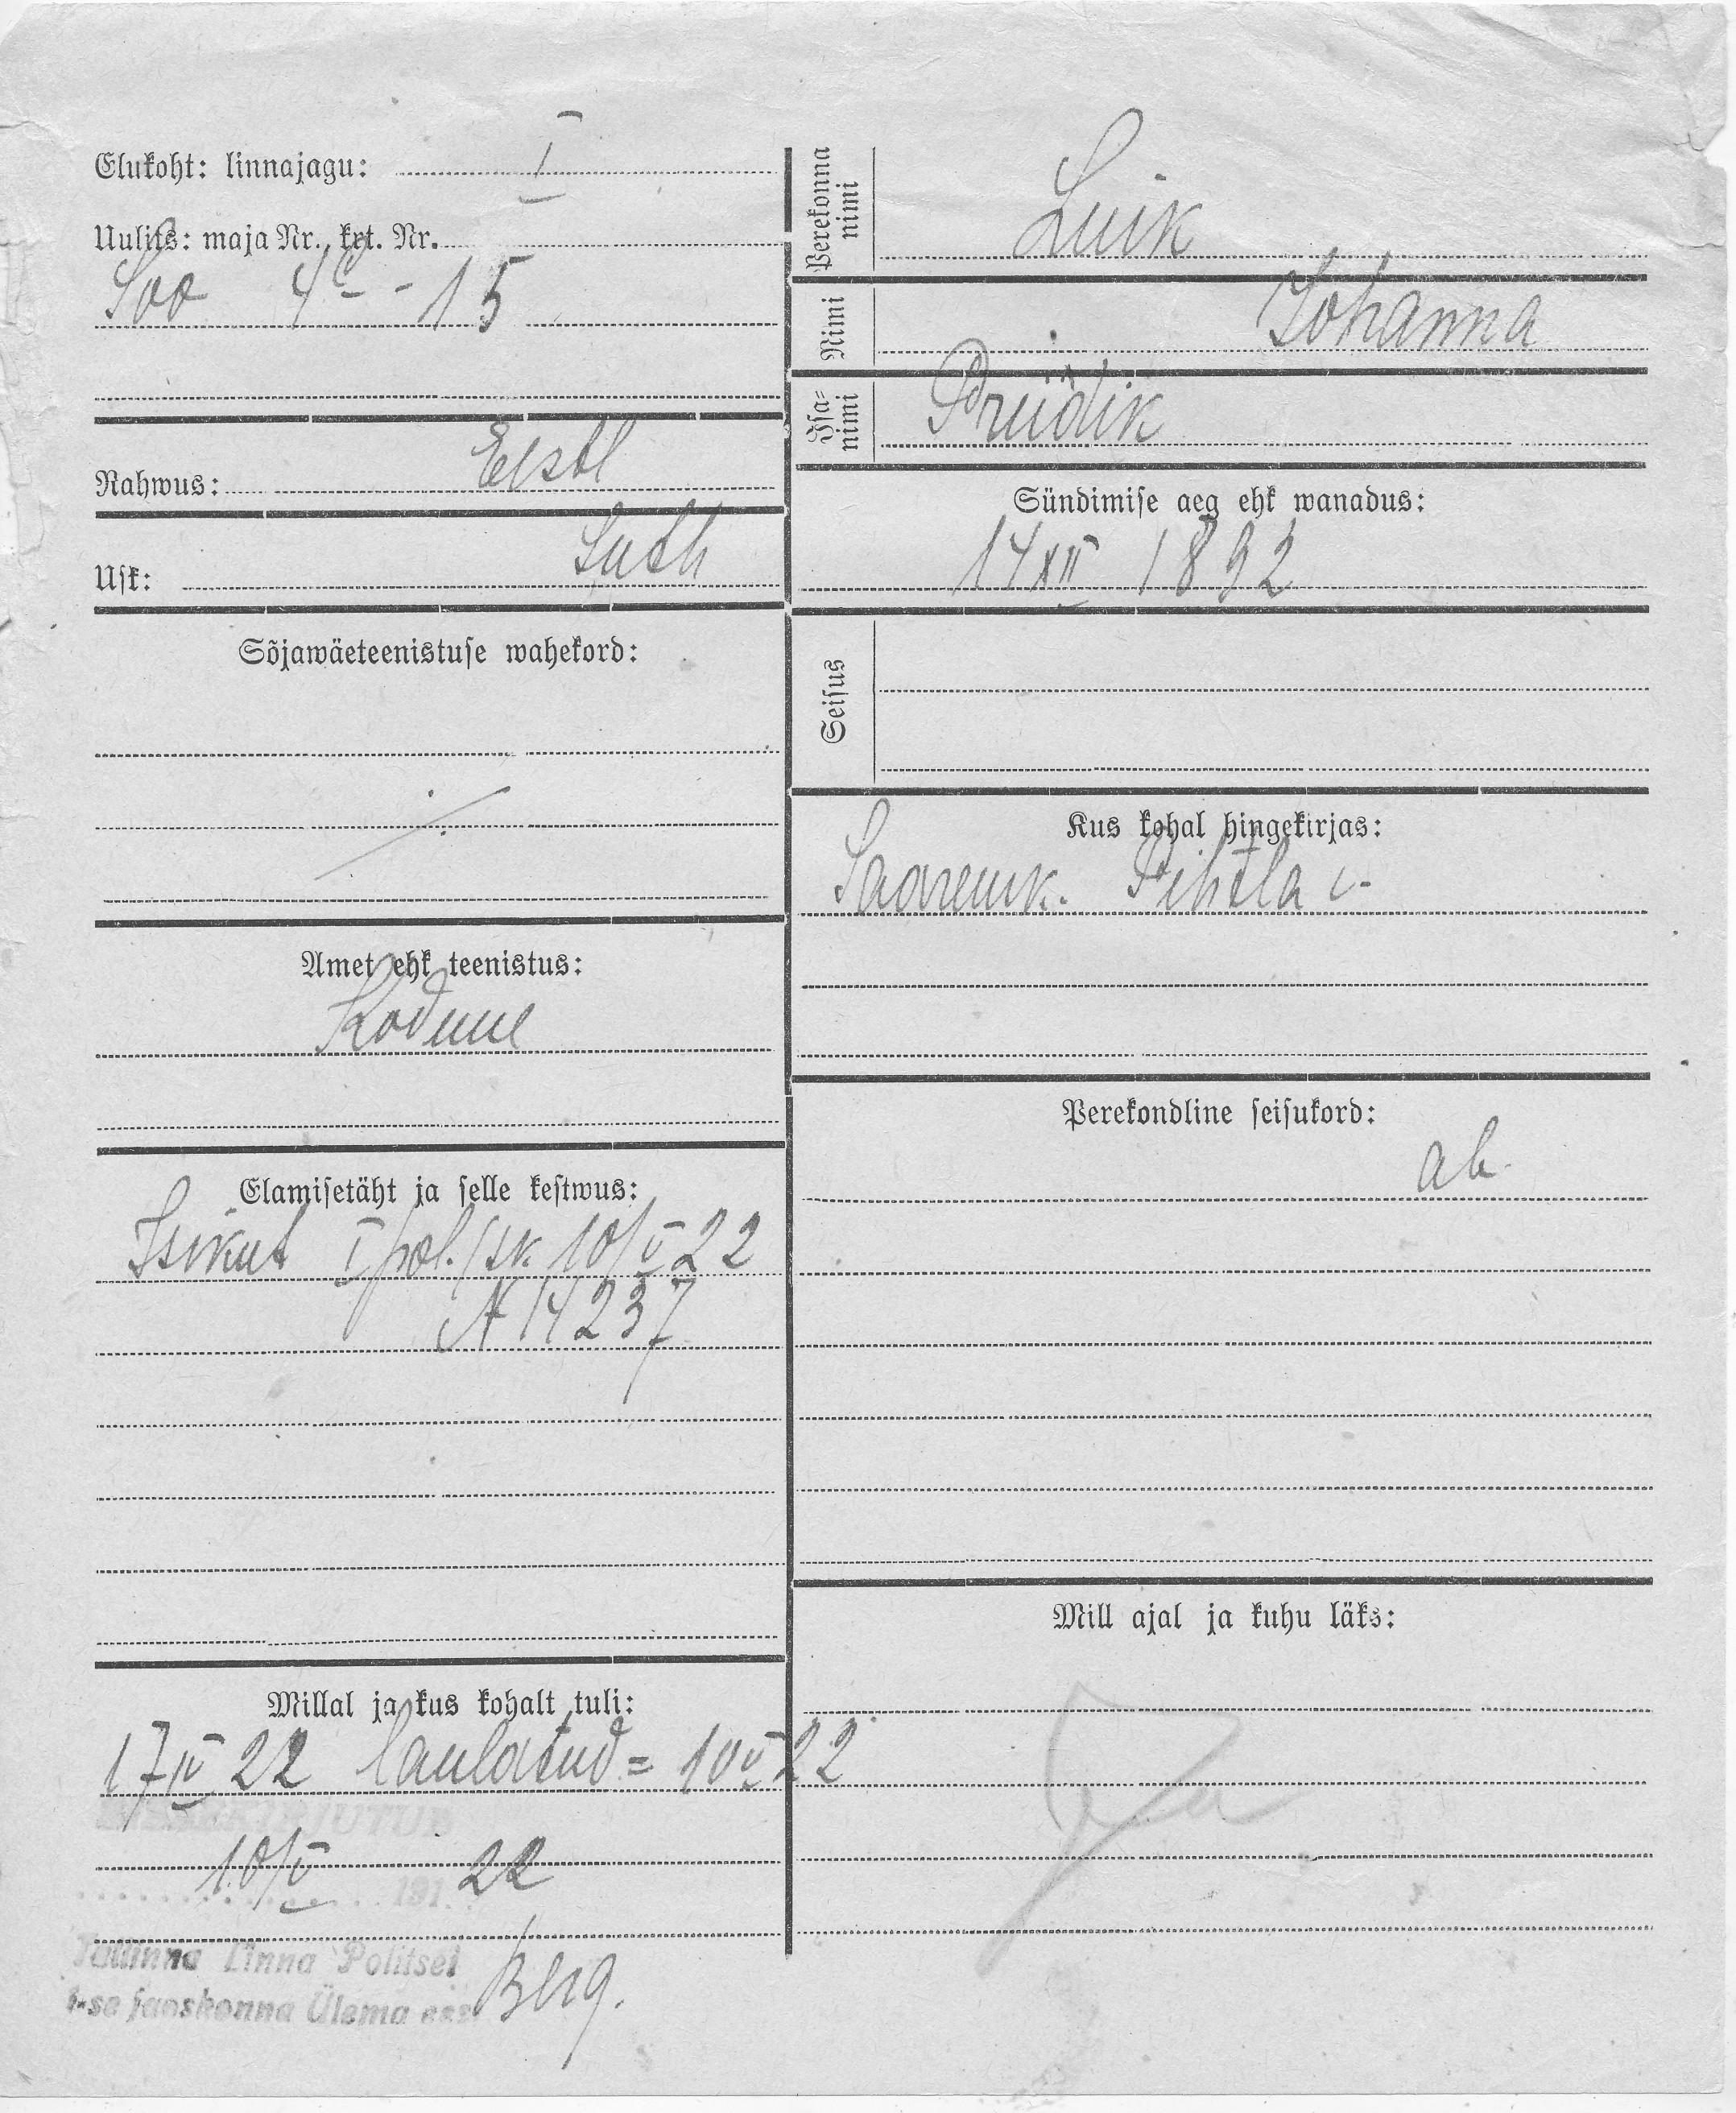 Elukoht: linnajagu: I
Uulits: maja Nr., krt. Nr.
Soo 4c - 15
Rahwus: Eestl
Usk: Luth
Sõjawäeteenistuse wahekord:
Amet ehk teenistus:
Kodune
Elamisetäht ja selle kestwus:
Isikut I pol./sk. 10/V 22
N 14237
Millal ja kus kohalt tuli:
17 IV 22 laulatud = 10 V 22
10/V 191 22
Tallinna Linna Politsei
I-se jaoskonna Ülema
Berg.
Perekonna nimi Luik
Nimi Johanna
Isa-nimi Priidik
Sündimise aeg ehk wanadus:
14 XII 1892
Seisus
Kus kohal hingekirjas:
Saaremk. Pihtla v.
Perekondline seisukord:
ab.
Mill ajal ja kuhu läks: